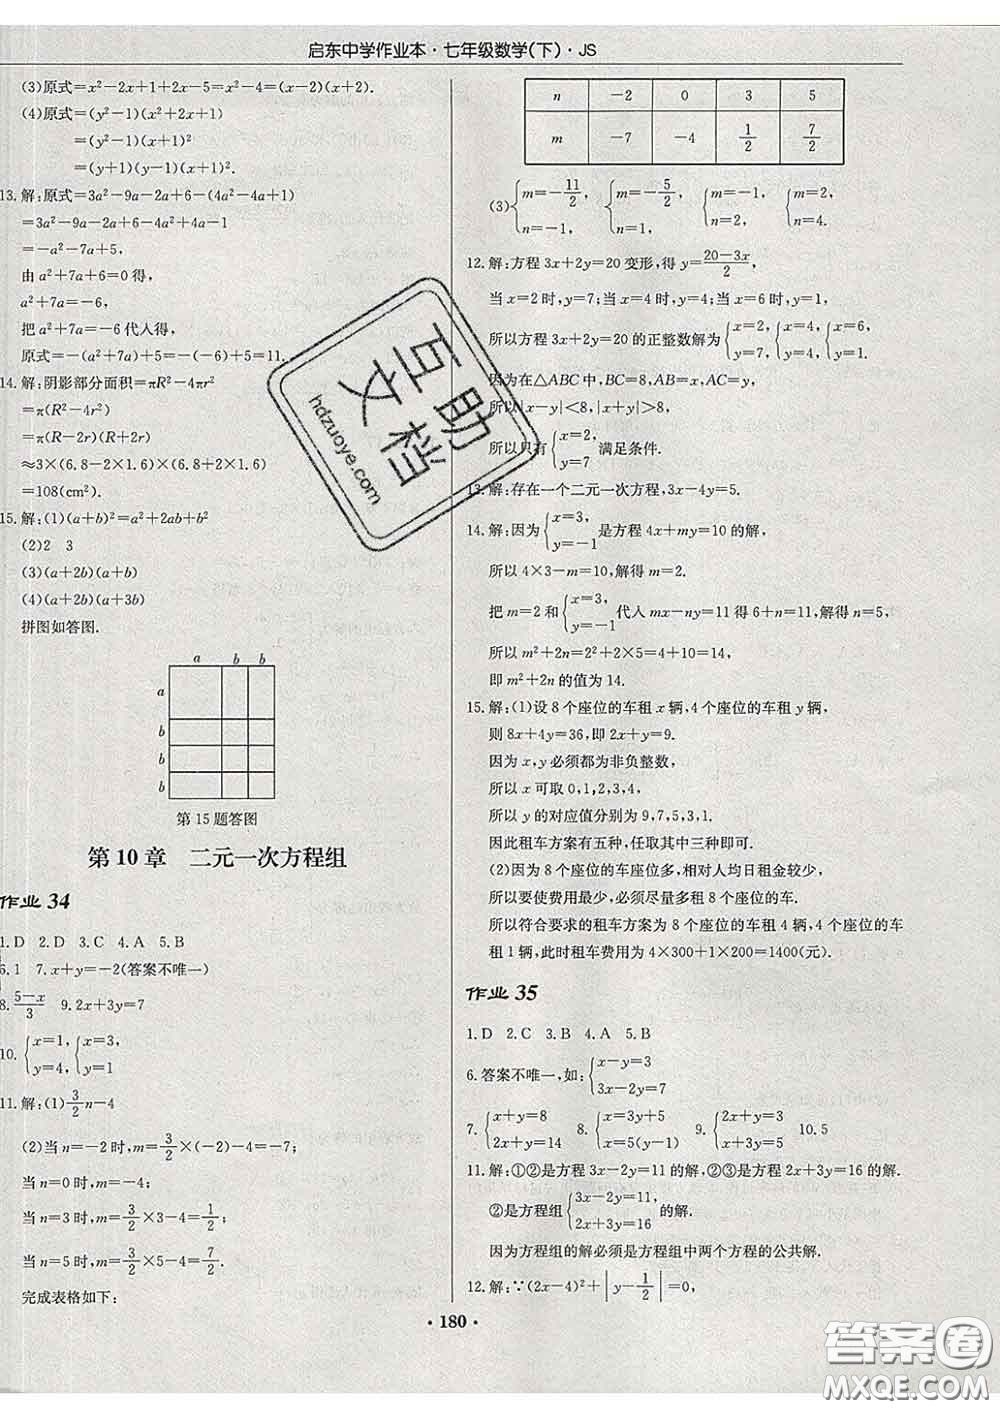 启东中学作业本·七年级数学(下)·JS
(3)原式=x²-2x+1+2x-5=x²-4=(x-2)(x+2).
(4)原式=(y²-1)(x²+2x+1)
=(y²-1)(x+1)²
=(y+1)(y-1)(x+1)².
13.解:原式=3a²-9a-2a+6-(4a²-4a+1)
=3a²-9a-2a+6-4a²+4a-1
=-a²-7a+5,
由 a²+7a+6=0 得,
a²+7a=-6,
把 a²+7a=-6 代入得,
原式=-(a²+7a)+5=-(-6)+5=11.
14.解:阴影部分面积=πR²-4πr²
=π(R²-4r²)
=π(R-2r)(R+2r)
≈3×(6.8-2×1.6)×(6.8+2×1.6)
=108(cm²).
15.解:(1)(a+b)²=a²+2ab+b²
(2)2 3
(3)(a+2b)(a+b)
(4)(a+2b)(a+3b)
拼图如答图.
a b b
a
b
b
b
第15题答图
第10章 二元一次方程组
作业 34
1.D 2.D 3.C 4.A 5.B
6.1 7.x+y=-2(答案不唯一)
8.(5-x)/3 9.2x+3y=7
10.{x=1, y=4, {x=3, y=1
11.解:(1)3/2 n-4
(2)当 n=-2 时,m=3/2×(-2)-4=-7;
当 n=0 时,m=-4;
当 n=3 时,m=3/2×3-4=1/2;
当 n=5 时,m=3/2×5-4=7/2.
完成表格如下:
n -2 0 3 5
m -7 -4 1/2 7/2
(3){m=-11/2, n=-1, {m=-5/2, n=1, {m=-1, n=2, {m=2, n=4.
12.解:方程 3x+2y=20 变形,得 y=(20-3x)/2,
当 x=2 时,y=7;当 x=4 时,y=4;当 x=6 时,y=1.
所以方程 3x+2y=20 的正整数解为{x=2, y=7, {x=4, y=4, {x=6, y=1.
因为在△ABC 中,BC=8,AB=x,AC=y,
所以|x-y|<8,|x+y|>8,
所以只有{x=2, y=7 满足条件.
13.解:存在一个二元一次方程,3x-4y=5.
14.解:因为{x=3, y=-1 是方程 4x+my=10 的解,
所以 4×3-m=10,解得 m=2.
把 m=2 和{x=3, y=-1 代入 mx-ny=11 得 6+n=11,解得 n=5,
所以 m²+2n=2²+2×5=4+10=14,
即 m²+2n 的值为 14.
15.解:(1)设 8 个座位的车租 x 辆,4 个座位的车租 y 辆,
则 8x+4y=36,即 2x+y=9.
因为 x,y 必须都为非负整数,
所以 x 可取 0,1,2,3,4,
所以 y 的对应值分别为 9,7,5,3,1.
因此租车方案有五种,任取其中三种即可.
(2)因为 8 个座位的车座位多,相对人均日租金较少,
所以要使费用最少,必须尽量多租 8 个座位的车.
所以符合要求的租车方案为 8 个座位的车租 4 辆,4 个座位的车
租 1 辆,此时租车费用为 4×300+1×200=1400(元).
作业 35
1.D 2.C 3.B 4.A 5.B
6.答案不唯一,如:{x-y=3 3x-2y=7
7.{x+y=8 2x+y=14 8.{x+y=3 x=5(y-1) 9.{2x+y=3 x+3y=5 10.5
11.解:①②是方程 3x-2y=11 的解,②③是方程 2x+3y=16 的解.
②是方程组{3x-2y=11, 2x+3y=16 的解.
因为方程组的解必须是方程组中两个方程的公共解.
12.解:∵(2x-4)²+|y-1/2|=0,
· 180 ·
互助文档
hdzuoye.com
答案圈
MXQE.COM